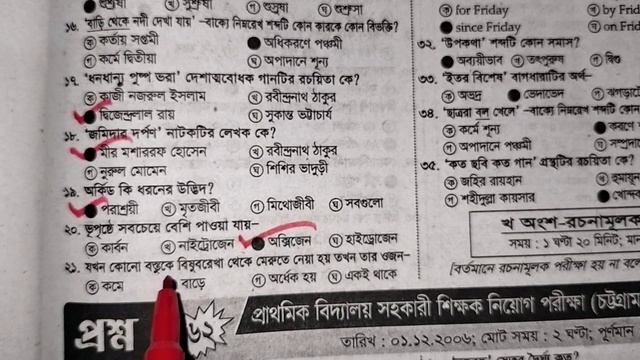 ১৬. 'বাড়ি থেকে নদী দেখা যায়' –বাক্যে নিম্নরেখ শব্দটি কোন কারকে কোন বিভক্তি?
ক কর্তায় সপ্তমী
অধিকরণে পঞ্চমী
গ কর্মে দ্বিতীয়া
ঘ অপাদানে শূন্য
১৭. 'ধনধান্য পুষ্প ভরা' দেশাত্মবোধক গানটির রচয়িতা কে?
ক কাজী নজরুল ইসলাম
খ রবীন্দ্রনাথ ঠাকুর
দ্বিজেন্দ্রলাল রায়
ঘ সুকান্ত ভট্টাচার্য
১৮. 'জমিদার দর্পণ' নাটকটির লেখক কে?
মীর মশাররফ হোসেন
খ রবীন্দ্রনাথ ঠাকুর
গ নুরুল মোমেন
ঘ শিশির ভাদুড়ী
১৯. অর্কিড কি ধরনের উদ্ভিদ?
পরাশ্রয়ী
খ মৃতজীবী
গ মিথোজীবী
ঘ সবগুলো
২০. ভূপৃষ্ঠে সবচেয়ে বেশি পাওয়া যায়–
ক কার্বন
খ নাইট্রোজেন
অক্সিজেন
ঘ হাইড্রোজেন
২১. যখন কোনো বস্তুকে বিষুবরেখা থেকে মেরুতে নেয়া হয় তখন তার ওজন–
ক কমে
বাড়ে
গ অর্ধেক হয়
ঘ একই থাকে
ক for Friday
খ by Frid
since Friday
ঘ on Frid
৩২. 'উপকণ্ঠ' শব্দটি কোন সমাস?
অব্যয়ীভাব
খ তৎপুরুষ
গ দ্বি
৩৩. 'ইতর বিশেষ' বাগধারাটির অর্থ–
ক অভদ্র
ভেদাভেদ
গ
৩৪. 'ছাত্ররা বল খেলে' –বাক্যে নিম্নরেখ শব্দটি কোন
ক কর্মে শূন্য
করণে
গ অপাদানে পঞ্চমী
ঘ
৩৫. 'কত ছবি কত গান' গ্রন্থটির রচয়িতা কে?
ক জহির রায়হান
খ হুমায়ূন
গ শহীদুল্লা কায়সার
খ অংশ-রচনামূলক
সময় : ১ ঘণ্টা ২০ মিনিট;
[বর্তমানে রচনামূলক পরীক্ষা হয় না
প্রশ্ন ৬২
প্রাথমিক বিদ্যালয় সহকারী শিক্ষক নিয়োগ পরীক্ষা (চট্টগ্রাম
তারিখ : ০১.১২.২০০৬; মোট সময় : ২ ঘণ্টা; পূর্ণমান